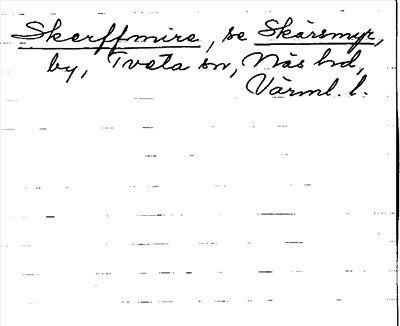 Skerffmire, se Skärsmyr,
by, Tveta sn, Näs hd,
Värml. l.